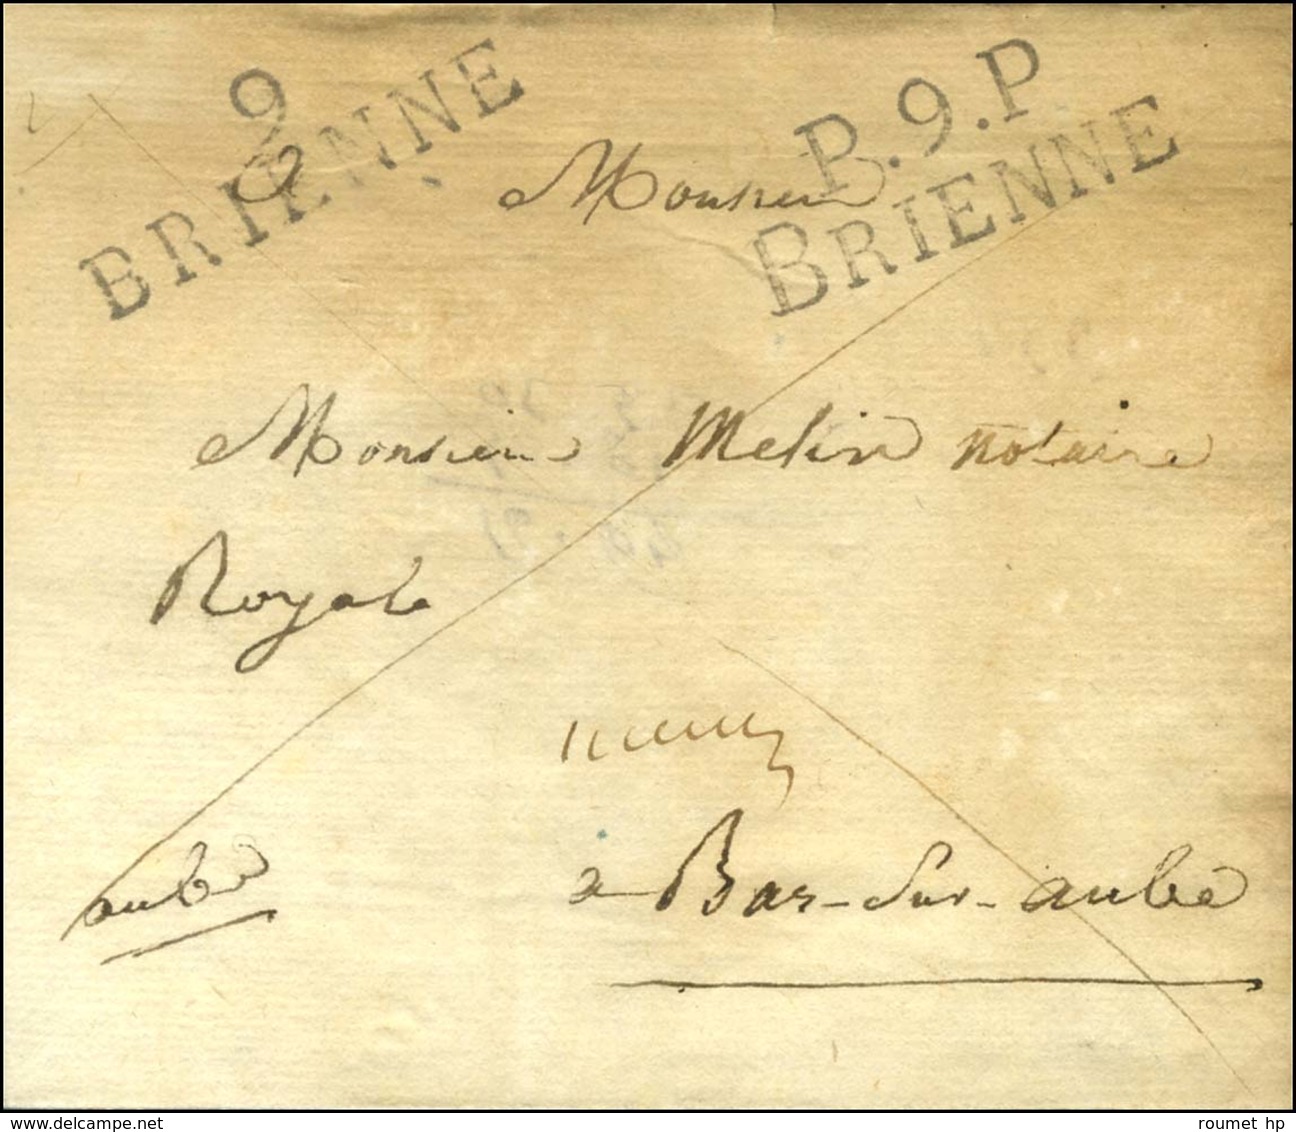 9
BRIENNE
P.9.P
BRIENNE
Monsieur
Monsieur Melin notaire
Royale
aube
a Bar-Sur-aube
delcampe.net
roumet hp